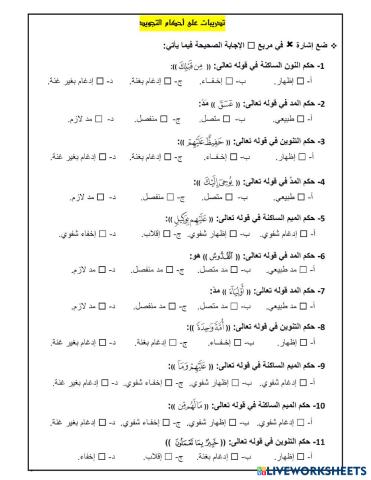 تدريبات على أحكام التجويد
❖ ضع إشارة ✖ في مربع □ الإجابة الصحيحة فيما يأتي:
1- حكم النون الساكنة في قوله تعالى: (( مِن قَبْلِكَ )):
أ- □ إظهار. ب- □ إخفاء. ج- □ إدغام بغنة. د- □ إدغام بغير غنة.
2- حكم المد في قوله تعالى: (( عَسَقَ )) مد:
أ- □ طبيعي. ب- □ متصل. ج- □ منفصل. د- □ مد لازم.
3- حكم التنوين في قوله تعالى: (( حَفِيظٌ عَلَيْهِمْ )):
أ- □ إظهار. ب- □ إخفاء. ج- □ إدغام بغنة. د- □ إدغام بغير غنة.
4- حكم المد في قوله تعالى: (( يُوحِي إِلَيْكَ )):
أ- □ طبيعي. ب- □ متصل. ج- □ منفصل. د- □ مد لازم.
5- حكم الميم الساكنة في قوله تعالى: (( عَلَيْهِم بِوَكِيلٍ )):
أ- □ إدغام شفوي. ب- □ إظهار شفوي. ج- □ إقلاب. د- □ إخفاء شفوي.
6- حكم المد في قوله تعالى: (( الْقُدُّوسُ )) هو:
أ- □ مد طبيعي. ب- □ مد متصل. ج- □ مد منفصل. د- □ مد لازم.
7- حكم المد في قوله تعالى: (( أَوْلِيَاءَ )) مد:
أ- □ مد طبيعي. ب- □ مد متصل. ج- □ مد منفصل. د- □ مد لازم.
8- حكم التنوين في قوله تعالى: (( أُمَّةً وَاحِدَةً )):
أ- □ إظهار. ب- □ إخفاء. ج- □ إدغام بغنة. د- □ إدغام بغير غنة.
9- حكم الميم الساكنة في قوله تعالى: (( عَلَيْهِمْ وَمَا )):
أ- □ إدغام شفوي. ب- □ إظهار شفوي. ج- □ إخفاء شفوي. د- □ إدغام بغير غنة.
10- حكم الميم الساكنة في قوله تعالى: (( مَا لَهُم مِّن )):
أ- □ إدغام شفوي. ب- □ إظهار شفوي. ج- □ إخفاء شفوي. د- □ إدغام بغير غنة.
11- حكم التنوين في قوله تعالى: (( خَبِيرٌ بِمَا تَعْمَلُونَ ))
أ- □ إظهار. ب- □ إدغام بغنة. ج- □ إقلاب. د- □ إخفاء.
LIVEWORKSHEETS